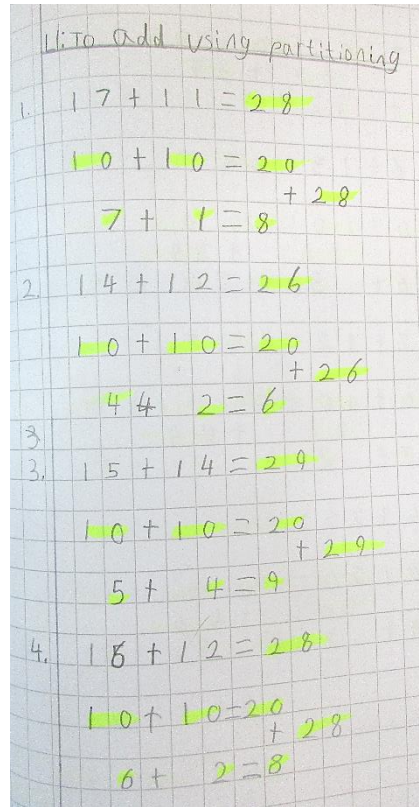 LI: To add using partitioning
1. 17 + 11 = 28
10 + 10 = 20
+ 28
7 + 1 = 8
2. 14 + 12 = 26
10 + 10 = 20
+ 26
4 4 2 = 6
3
3. 15 + 14 = 29
10 + 10 = 20
+ 29
5 + 4 = 9
4. 16 + 12 = 28
10 + 10 = 20
+ 28
6 + 2 = 8